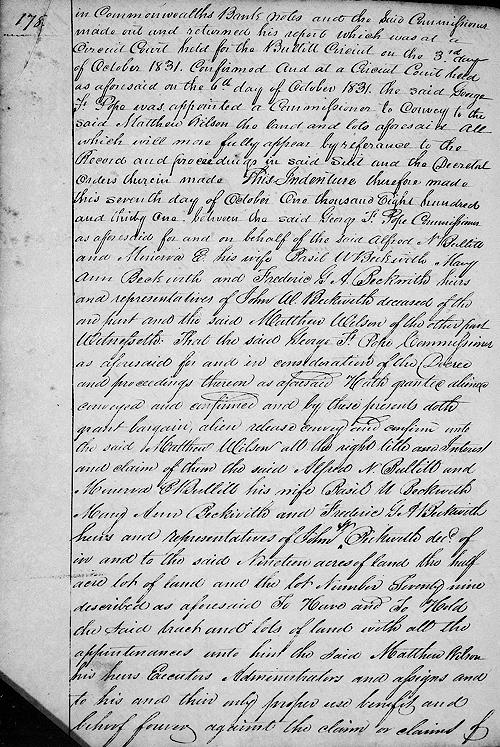 178
in Commonwealths Bank notes and the said Commissioner
made out and returned his report which was at a
Circuit Court held for the Bullitt Circuit on the 3rd day
of October 1831. Confirmed And at a Circuit Court held
as aforesaid on the 6th day of October 1831. the said George
F. Pope was appointed a Commissioner to Convey to the
said Matthew Wilson the land and lots aforesaid All
which will more fully appear by referance to the
Record and proceedings in said Suit and the Decretal
Orders therein made This Indenture therefore made
this seventh day of October One thousand Eight hundred
and thirty one. between the said George F. Pope Commissioner
as aforesaid for and on behalf of the said Alfred N Bullitt
and Minerva E. his wife Basil W Beckwith Mary
Ann Beckwith and Frederic G. A. Beckwith heirs
and representatives of John W Beckwith deceased of the
one part and the said Matthew Wilson of the other part
Witnesseth. That the said George F. Pope Commissioner
as aforesaid for and in consideration of the Decree
and proceedings thereon as aforesaid Hath granted aliened
conveyed and confirmed and by these presents doth
grant bargain, alien release convey and confirm unto
the said Matthew Wilson all the right title and Interest
and claim of them the said Alfred N. Bullitt and
Minerva E Bullitt his wife Basil W Beckwith
Mary Ann Beckwith and Frederic G. A Beckwith
heirs and representatives of John W. Beckwith decd. of
in and to the said Nineteen acres of land the half
acre lot of land and the lot Number Seventy nine
described as aforesaid To Have and To Hold
the said track and lots of land with all the
appurtenances unto him the said Matthew Wilson
his heirs Executors Administrators and assigns and
to his and their only proper use benefit and
behoof forever against the claim or claims of